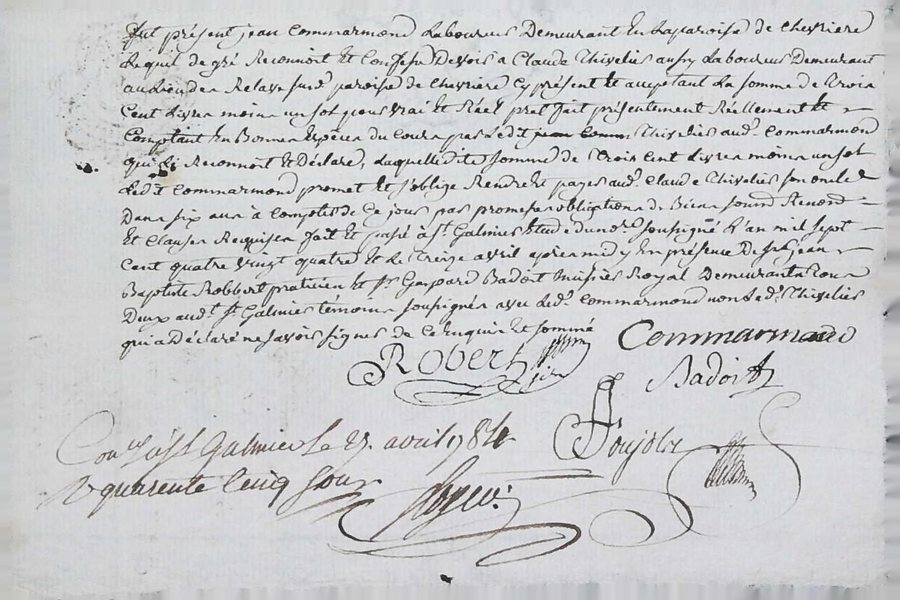 fut présent jean Commarmond Laboureur Demeurant En La paroisse de Chevriere
Lequel de gré Reconnoit Et Confesse Devoir à Claude Thivelier aussy Laboureur Demeurant
au Lieu de Relave susd. paroisse de Chevriere Cy présent Et acceptant La somme de trois
Cent Livres moins un sol pour vrai Et Réel prêt fait présentement Réellement Et
Comptant En Bonnes Espèces du Cours par Ledit jean Comm Thivelier aud. Commarmond
qui Le Reconnoit Et Déclare, Laquelle dite somme de trois Cent Livres moins un sol
Ledit Commarmond promet Et s'oblige Rendre Et payer aud. Claude Thivelier son oncle
Dans six ans à Compter de Ce jour par promesse obligation de Biens soumd Renond
Et Clauses Requises fait Et passé à St. Galmier Etude du no.re soussigné L'an mil sept
Cent quatre vingt quatre Et Le treize avril après midy En présence De Sr. jean
Baptiste Robbert praticien Et Sr. Gaspard Badoit huissier Royal Demeurants tous
Deux aud. St. Galmier témoins soussignés avec Led. Commarmond non Led. Thivelier
qui a Déclaré ne savoir signer de Ce Enquis Et sommé
Robert Commarmond
Badoit
Con.lé à St Galmier Le 27 avril 1784
R quarente Cinq sous